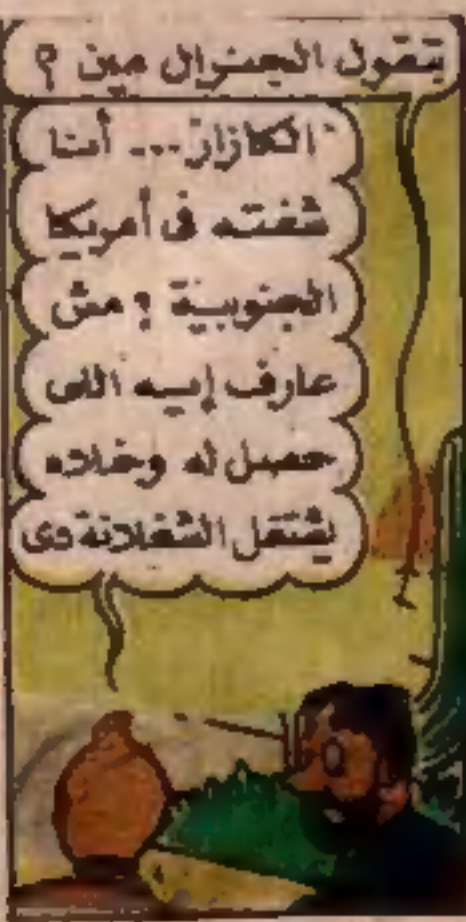 بتقول الجنرال مين ؟
الكازار... أنا
شفته فى أمريكا
الجنوبية ؟ مش
عارف إيه اللى
حصل له وخلاه
يشتغل الشغلانة دى